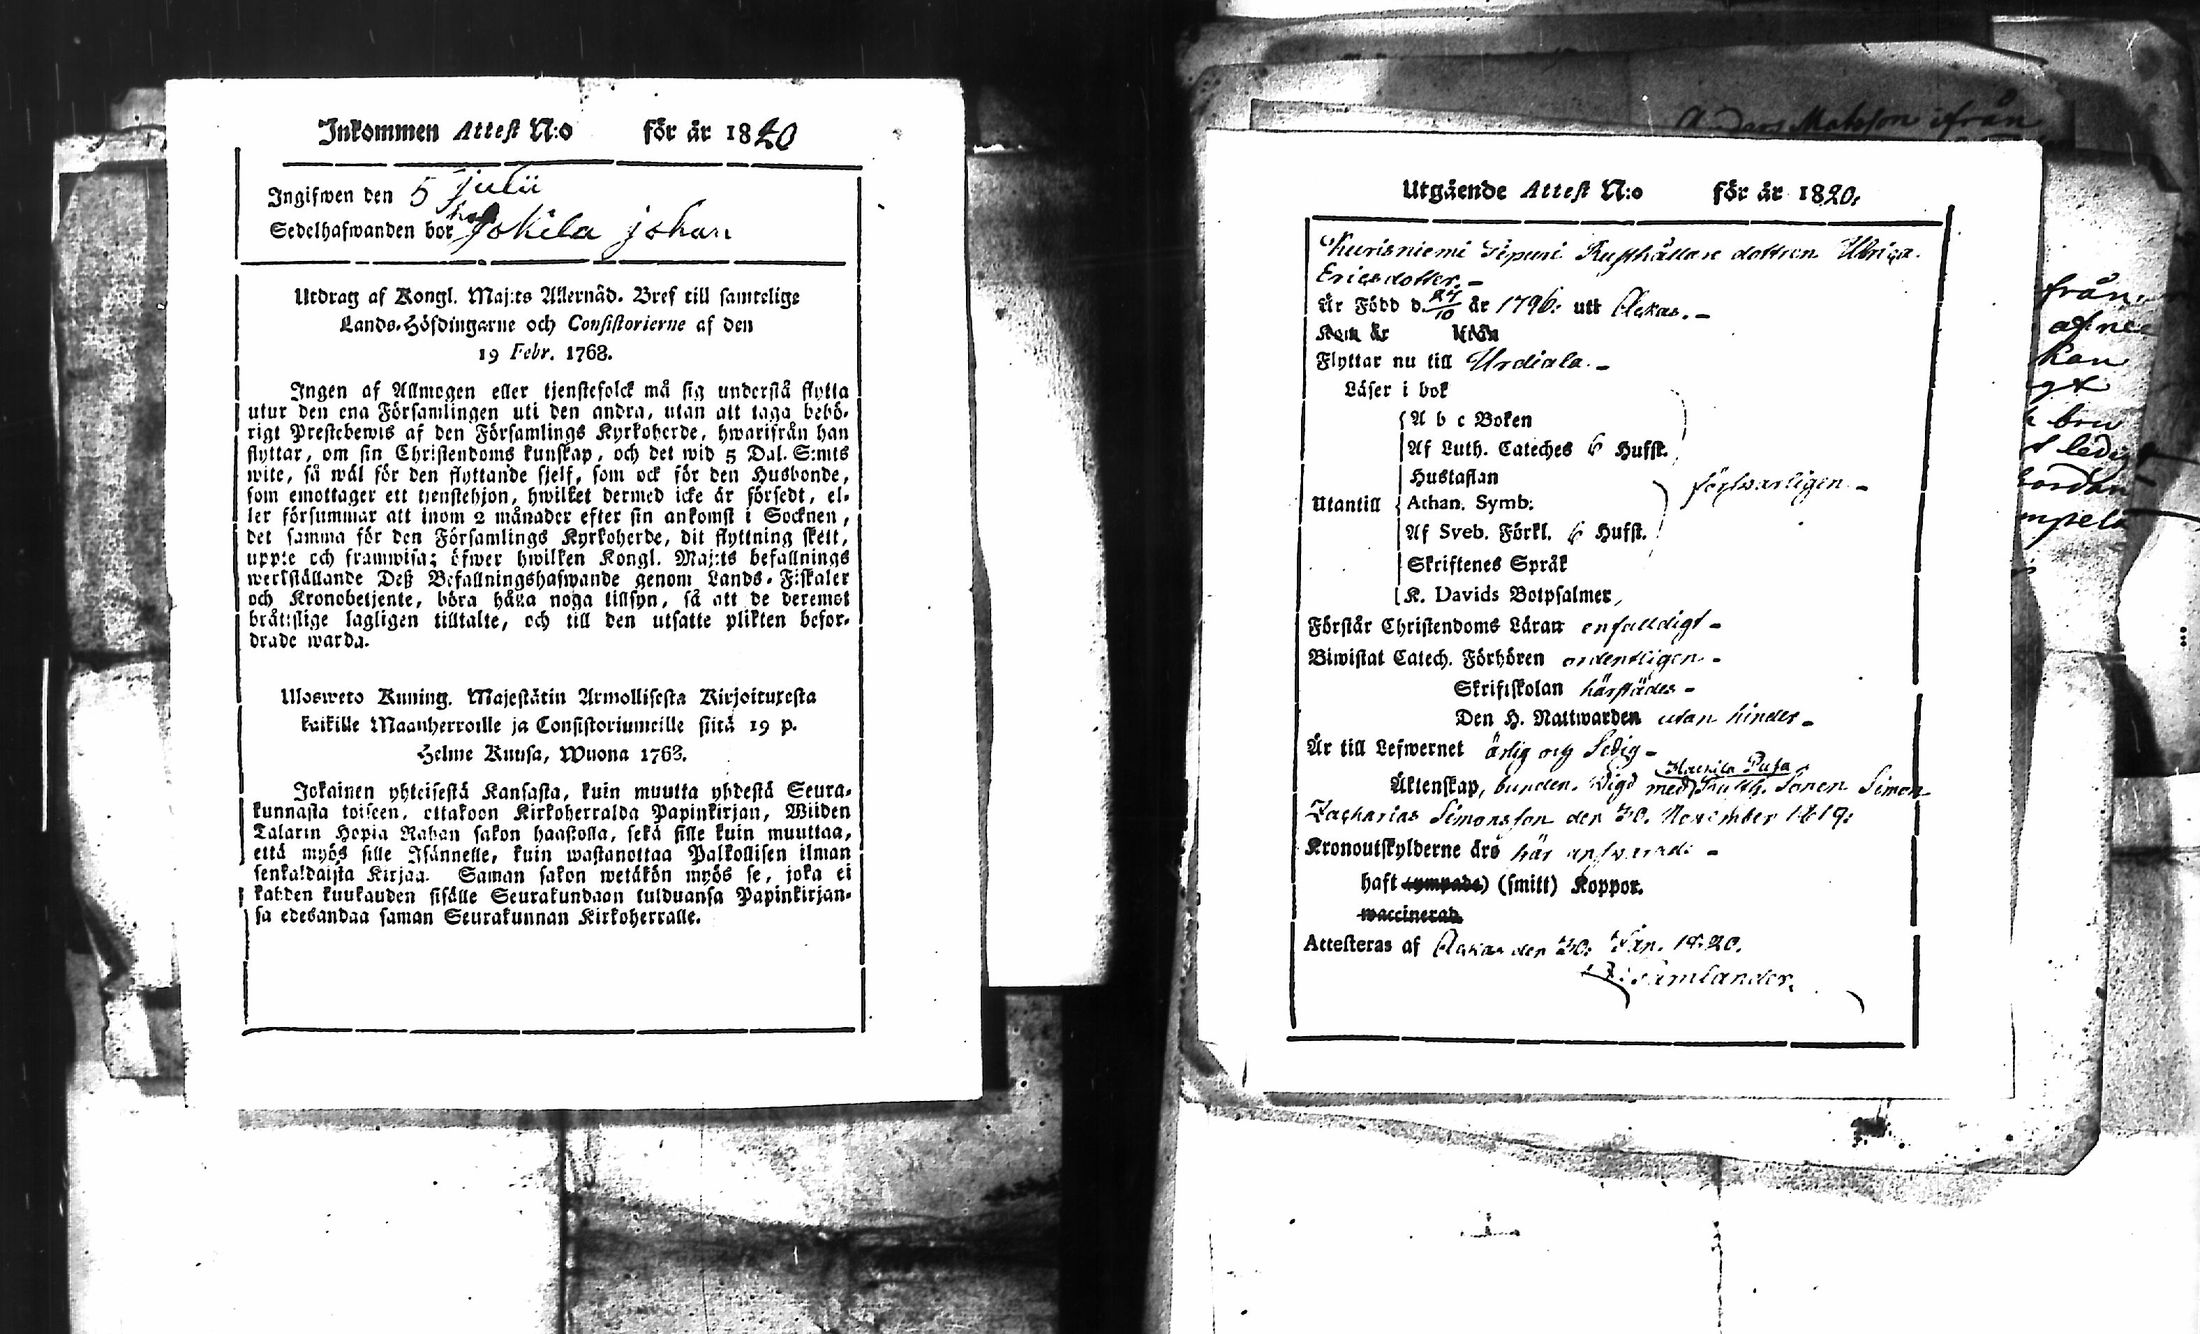 Inkommen Attest N:o för år 1820
Ingifwen den 5 Julii
Sedelhafwanden bor Jokila Johan
Utdrag af Kongl. Maj:ts Allernåd. Bref till samtelige
Lands-Höfdingarne och Consistorierne af den
19 Febr. 1768.
Ingen af Allmogen eller tjenstefolck må sig understå flytta
utur den ena Församlingen uti den andra, utan att taga behö-
rigt Prestebewis af den Församlings Kyrkoherde, hwarifrån han
flyttar, om sin Christendoms kunskap, och det wid 5 Dal. S:mts
wite, så wäl för den flyttande sjelf, som ock för den Husbonde,
som emottager ett tjenstehjon, hwilket dermed icke är försedt, el-
ler försummar att inom 2 månader efter sin ankomst i Socknen,
det samma för den Församlings Kyrkoherde, dit flyttning skett,
uppte och framwisa; öfwer hwilken Kongl. Maj:ts befallnings
werkställande Deß Befallningshafwande genom Lands-Fiskaler
och Kronobetjente, böra hålla noga tillsyn, så att de deremot
bråttslige lagligen tilltalte, och till den utsatte plikten befor-
drade warda.
Ulosweto Kuning. Majestätin Armollisesta Kirjoituxesta
kaikille Maanherroille ja Consistoriumeille siitä 19 p.
Helme Kuusa, Wuona 1768.
Jokainen yhteisestä Kansasta, kuin muutta yhdestä Seura-
kunnasta toiseen, ottakoon Kirkoherralda Papinkirjan, Wiiden
Talarin Hopia Rahan sakon haastolla, sekä sille kuin muuttaa,
että myös sille Isännelle, kuin wastanottaa Palkollisen ilman
senkaldaista Kirjaa. Saman sakon wetäkön myös se, joka ei
kahden kuukauden sisälle Seurakundaan tulduansa Papinkirjan-
sa edesandaa saman Seurakunnan Kirkoherralle.
Anders Matsson ifrån
Utgående Attest N:o för år 1820.
Kurisniemi Sepuri Rusthållare dottren Ulrica
Ericsdotter.
Är Född d. 24/10 år 1796. utt Ackas.
Kom är ifrån
Flyttar nu till Urdiala.
Läser i bok
A b c Boken
Af Luth. Cateches 6 Hufst.
Hustaflan
Utantill Athan. Symb:
förswarligen
Af Sveb. Förkl. 6 Hufst.
Skriftenes Språk
K. Davids Botpsalmer,
Förstår Christendoms Läran enfalldigt
Biwistat Catech. Förhören ordentligen
Skriftskolan härstädes
Den H. Nattwarden utan hinder
Är till Lefwernet ärlig och Ledig
Äktenskap, bunden. Wigd med Rusth. Sonen Simon
Zacharias Simonsson den 30. November 1819.
Kronoutskylderne äro här answarade
haft (ympade) (smitt) Koppor.
waccinerad
Attesteras af Ackas den 30. Jan. 1820.
från
kan
ledig